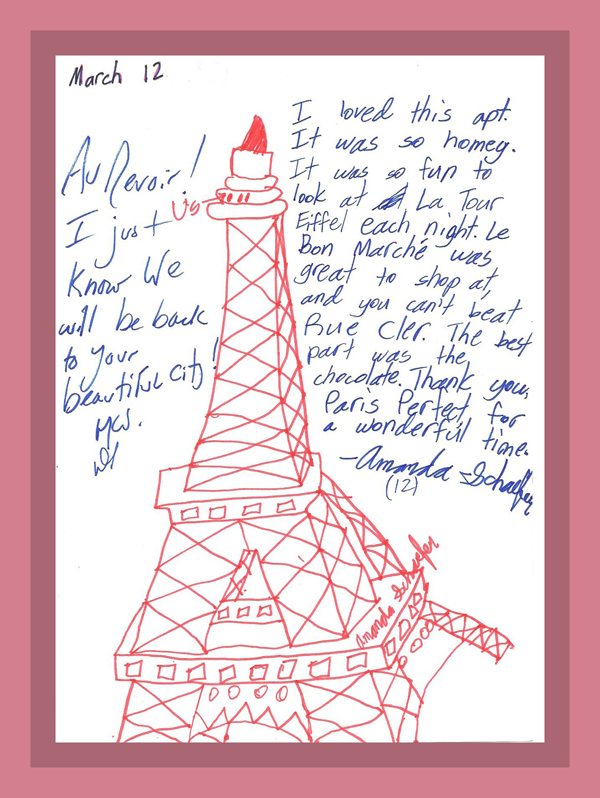 March 12
Au Revoir!
I just
Know We
will be back
to your
beautiful city!
Us
I loved this apt.
It was so homey.
It was so fun to
look at La Tour
Eiffel each night. Le
Bon Marché was
great to shop at,
and you can't beat
Rue Cler. The best
part was the
chocolate. Thank you,
Paris Perfect, for
a wonderful time.
-Amanda Schaefer
(12)
Amanda Schaefer